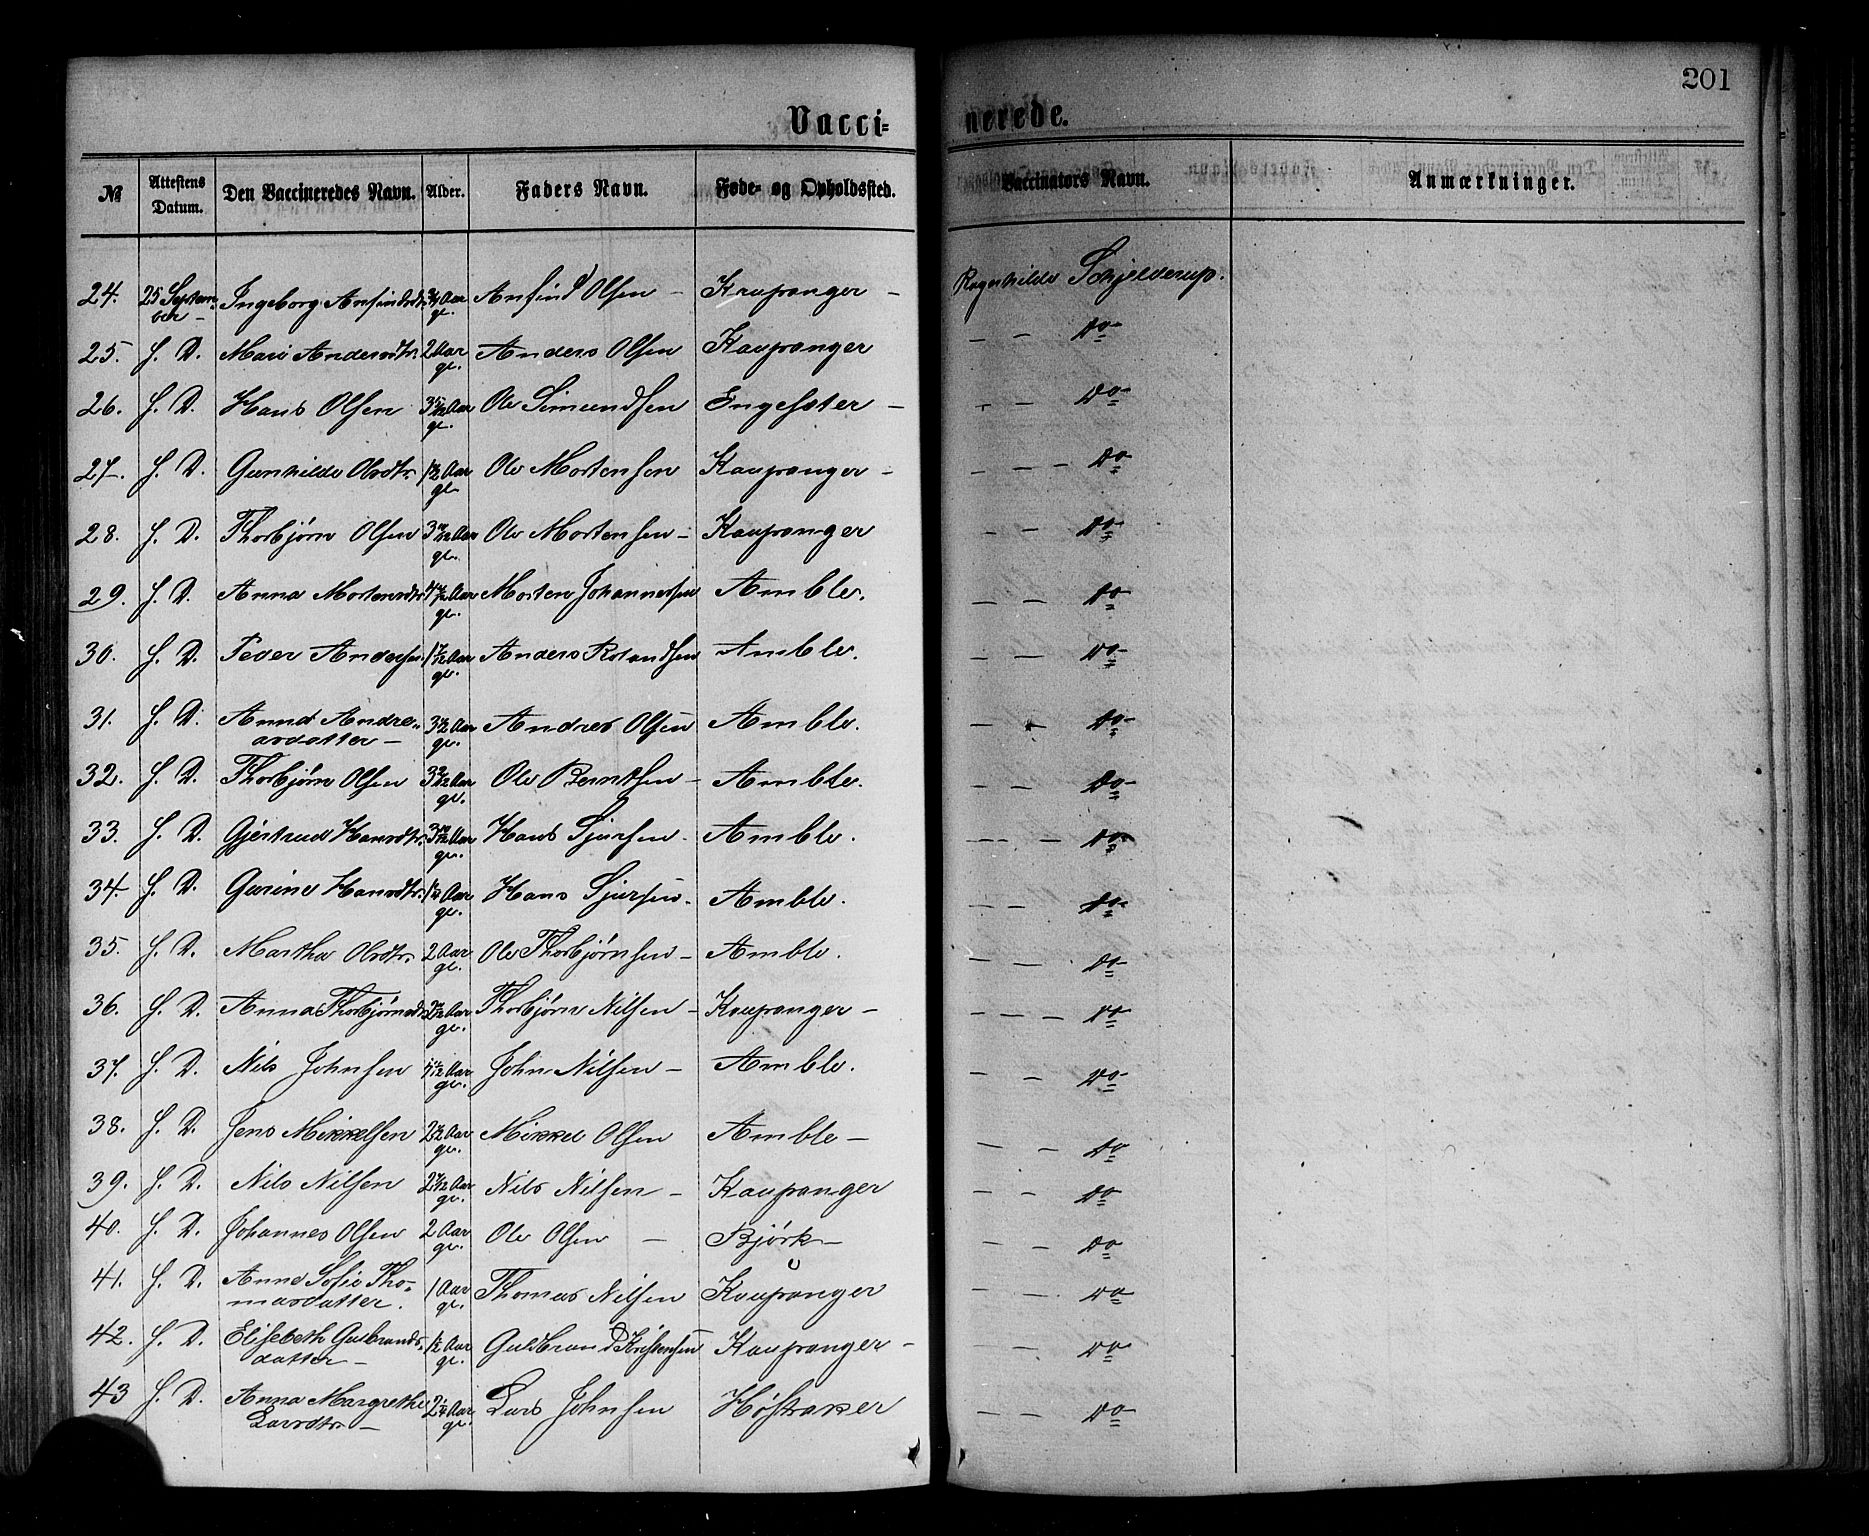 201
Vacci= nerede.
№ Attestens Datum. Den Vaccineredes Navn. Alder. Faders Navn. Føde- og Opholdssted. Vaccinators Navn. Anmærkninger.
24. 25 September – Ingeborg Anfindsdtr. Aar gl. Anfind Olsen – Kaupanger – Ragnhilde Schjelderup.
25. S. D. Mari Andersdtr. 2 Aar gl. Anders Olsen Kaupanger – – Do –
26. S. D. Hans Olsen 3 Aar gl. Ole Simundsen Engesæter – – – Do –
27. S. D. Gunhilde Olsdtr. 1 Aar gl. Ole Mortensen Kaupanger – – – – Do –
28. S. D. Thorbjørn Olsen 3 Aar gl. Ole Mortensen – Kaupanger – – Do –
29. S. D. Anna Mortensdtr Aar gl. Morten Johannessen Amble. – – Do –
30. S. D. Peder Andersen 1 Aar gl. Anders Rolandsen Amble. – – Do –
31. S. D. Anna Andreasdatter – 3 Aar gl. Andreas Olsen Amble. – – Do –
32. S. D. Thorbjørn Olsen 3 Aar gl. Ole Berntsen – Amble. – – Do –
33. S. D. Gjertrud Hansdtr. 3 Aar gl. Hans Sjursen – Amble. – – Do –
34. S. D. Gurine Hansdtr. 1 Aar gl. Hans Sjursen. Amble. – – Do –
35. S. D. Martha Olsdtr. 2 Aar gl. Ole Thorbjørnsen – Amble. – – Do –
36. S. D. Anna Thorbjørnsdtr 2 Aar gl. Thorbjørn Nilsen – Kaupanger – – – – Do –
37. S. D. Nils Johnsen Aar gl. John Nilsen – Amble. – – Do –
38. S. D. Jens Mikkelsen 2 Aar gl. Mikkel Olsen Amble – – – Do
39. S. D. Nils Nilsen 2 Aar gl. Nils Nilsen – Kaupanger – – Do
40. S. D. Johannes Olsen 2 Aar gl. Ole Olsen – Bjørk – – – Do
41. S. D. Anna Sofie Thomasdatter. 1 Aar gl. Thomas Nilsen Kaupanger – – Do –
42. S. D. Elisebeth Gulbrandsdatter – 1½ Aar gl. Guldbrand Kristensen Kaupanger – – – Do –
43 S. D. Anna Margrethe Larsdtr. – 2 Aar gl. Lars Johnsen Høstaker – – Do –